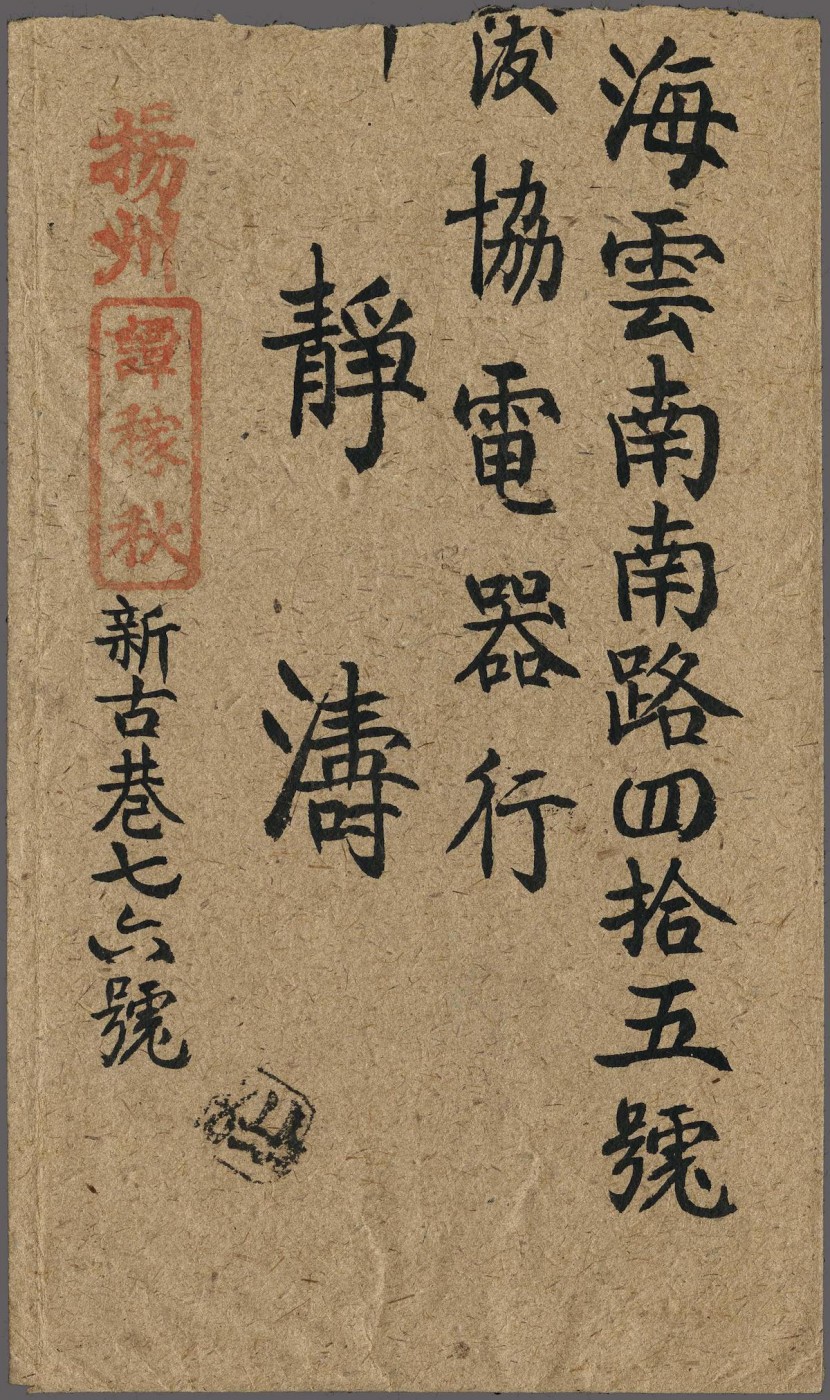 海雲南南路四拾五號
協電器行
靜濤
揚州
譚稼秋
新古巷七六號